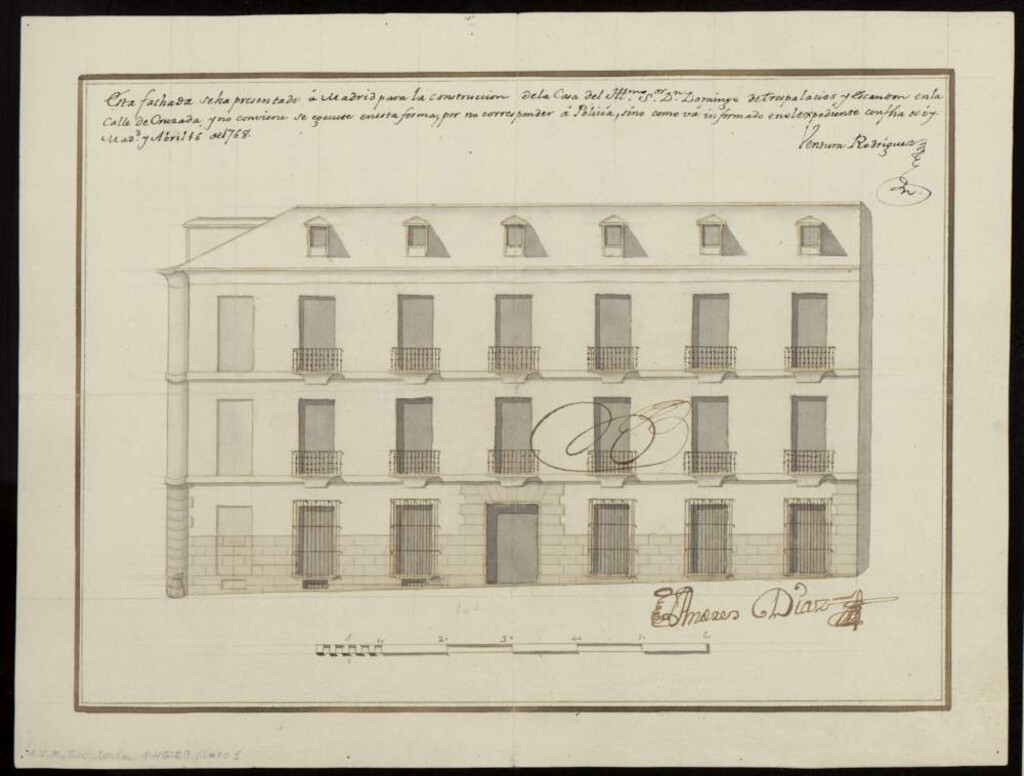 Esta fachada seha presentado â Madrid para la construccion dela Casa del Yllmo. Sr. Dn. Domingo detrespalacios y escandon enla
Calle de Cruzada, y no conviene se egecute enesta forma, por no corresponder â Policia, sino como vá informado enelexpediente con fha de oy
Madd. y Abril 16 de 1768.
Ventura Rodriguez
Andres Diaz
1 2 3 4 5 6
A.V.M. Secretaría 1-46-129, plano 1